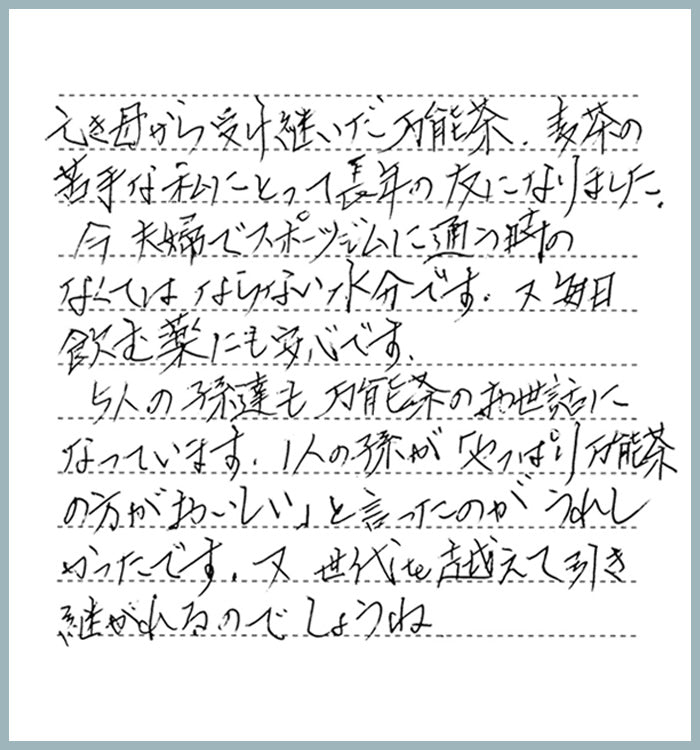 亡き母から受け継いだ万能茶．麦茶の
苦手な私にとって長年の友になりました．
今 夫婦でスポーツジムに通う時の
なくてはならない水分です．又 毎日
飲む薬にも安心です．
5人の孫達も 万能茶のお世話に
なっています．1人の孫が「やっぱり万能茶
の方がおいしい」と言ったのが うれし
かったです．又 世代を越えて引き
継がれるのでしょうね